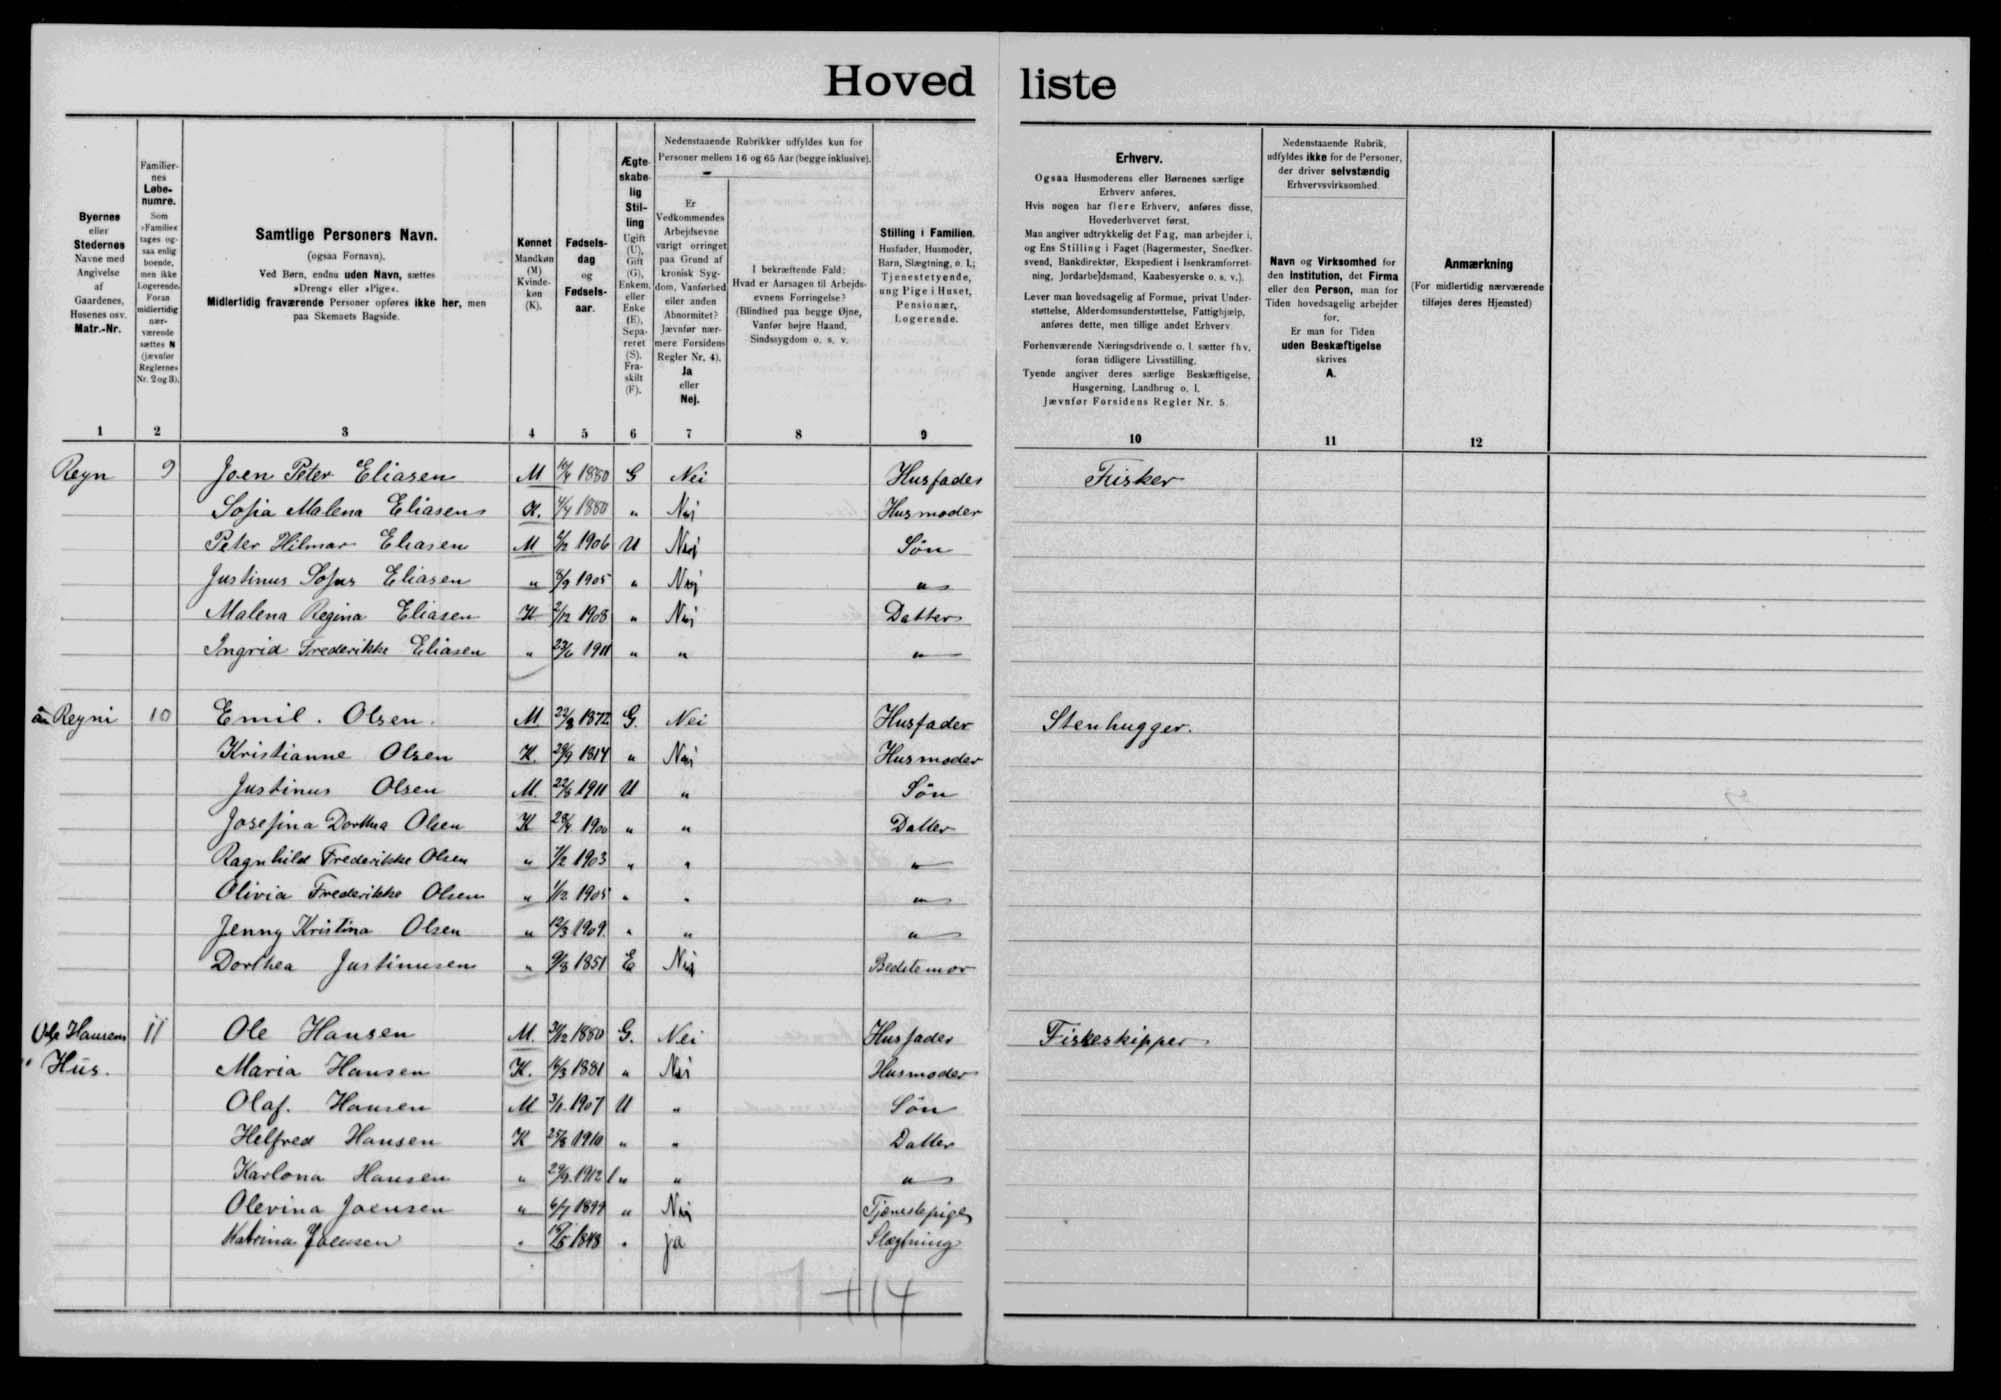 Hoved liste
Byernes eller Stedernes Navne med Angivelse af Gaardenes, Husenes osv. Matr.-Nr.
Familiernes Løbenumre. Som »Familie« tages ogsaa enlig boende, men ikke Logerende. Foran midlertidig nærværende sættes N (jævnfør Reglernes Nr. 2 og 3).
Samtlige Personers Navn.
(ogsaa Fornavn).
Ved Børn, endnu uden Navn, sættes »Dreng« eller »Pige«.
Midlertidig fraværende Personer opføres ikke her, men paa Skemaets Bagside.
Kønnet Mandkøn (M) Kvindekøn (K).
Fødselsdag og Fødselsaar.
Ægteskabelig Stilling Ugift (U), Gift (G), Enkem. eller Enke (E), Separeret (S). Fraskilt (F).
Nedenstaaende Rubrikker udfyldes kun for Personer mellem 16 og 65 Aar (begge inklusive).
Er Vedkommendes Arbejdsevne varigt forringet paa Grund af kronisk Sygdom, Vanførhed eller anden Abnormitet? Jævnfør nærmere Forsidens Regler Nr. 4). Ja eller Nej.
I bekræftende Fald: Hvad er Aarsagen til Arbejdsevnens Forringelse? (Blindhed paa begge Øjne, Vanfør højre Haand, Sindssygdom o. s. v.
Stilling i Familien. Husfader, Husmoder, Barn, Slægtning, o. l.; Tjenestetyende, ung Pige i Huset, Pensionær, Logerende.
Erhverv.
Ogsaa Husmoderens eller Børnenes særlige Erhverv anføres.
Hvis nogen har flere Erhverv, anføres disse, Hovederhvervet først.
Man angiver udtrykkelig det Fag, man arbejder i, og Ens Stilling i Faget (Bagermester, Snedkersvend, Bankdirektør, Ekspedient i Isenkramforretning, Jordarbejdsmand, Kaabesyerske o. s. v.).
Lever man hovedsagelig af Formue, privat Understøttelse, Alderdomsunderstøttelse, Fattighjælp, anføres dette, men tillige andet Erhverv.
Forhenværende Næringsdrivende o. l. sætter fhv. foran tidligere Livsstilling.
Tyende angiver deres særlige Beskæftigelse, Husgerning, Landbrug o. l.
Jævnfør Forsidens Regler Nr. 5.
Nedenstaaende Rubrik, udfyldes ikke for de Personer, der driver selvstændig Erhvervsvirksomhed.
Navn og Virksomhed for den Institution, det Firma eller den Person, man for Tiden hovedsagelig arbejder for.
Er man for Tiden uden Beskæftigelse skrives A.
Anmærkning
(For midlertidig nærværende tilføjes deres Hjemsted)
1 2 3 4 5 6 7 8 9 10 11 12
Reyn 9 Joen Peter Eliasen M 1880 G Nei Husfader Fisker
Sofia Malena Eliasen K. 1880 " Nei Husmoder
Peter Hilmar Eliasen M 1906 U Nei Søn
Justinus Sofus Eliasen " 8/9 1905 " Nei "
Malena Regina Eliasen K 2/12 1908 " Nei Datter
Ingrid Frederikke Eliasen " 1911 " " "
Reyni 10 Emil. Olsen. M. 22/8 1872 G. Nei Husfader Stenhugger.
Kristianne Olsen K. " Nei Husmoder
Justinus Olsen M. 22/8 1911 U " Søn
Josefina Dorthea Olsen K 1900 " " Datter
Ragnhild Frederikke Olsen " 1903 " " "
Olivia Frederikke Olsen " 1/12 1905 " " "
Jenny Kristina Olsen " 12/3 1909. " " "
Dorthea Justinusen " 9/8 1851 E Nei Bedstemor
Ole Hansens 11 Ole Hansen M. 1880 G. Nei Husfader Fiskeskipper
Hus. Maria Hansen K. 1881 " Nei Husmoder
Olaf. Hansen M 1907 U " Søn
Helfred Hansen K 25/8 1910 " " Datter
Karlona Hansen " 1912 " " "
Olevina Joensen " 6/7 1899 " Nei Tjenestepige
Katrina Joensen " " ja Slægtning